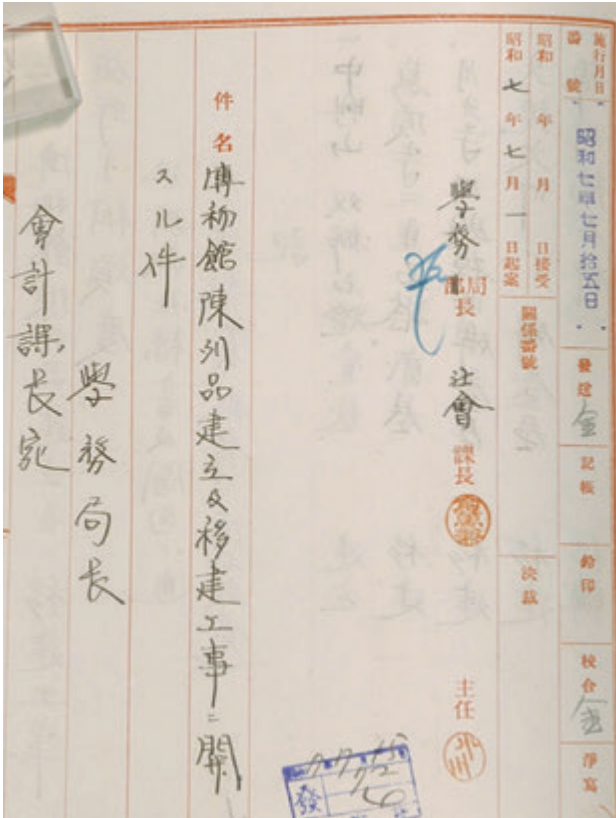 施行月日 昭和七年七月拾五日 發送 金 記帳 鈐印 校合 金 淨寫
番號
昭和 年 月 日接受 關係番號 決裁
昭和七年七月一日起案
學務局長 社會課長 主任
件名 博物館陳列品建立及移建工事ニ關
スル件
學務局長
會計課長宛
發